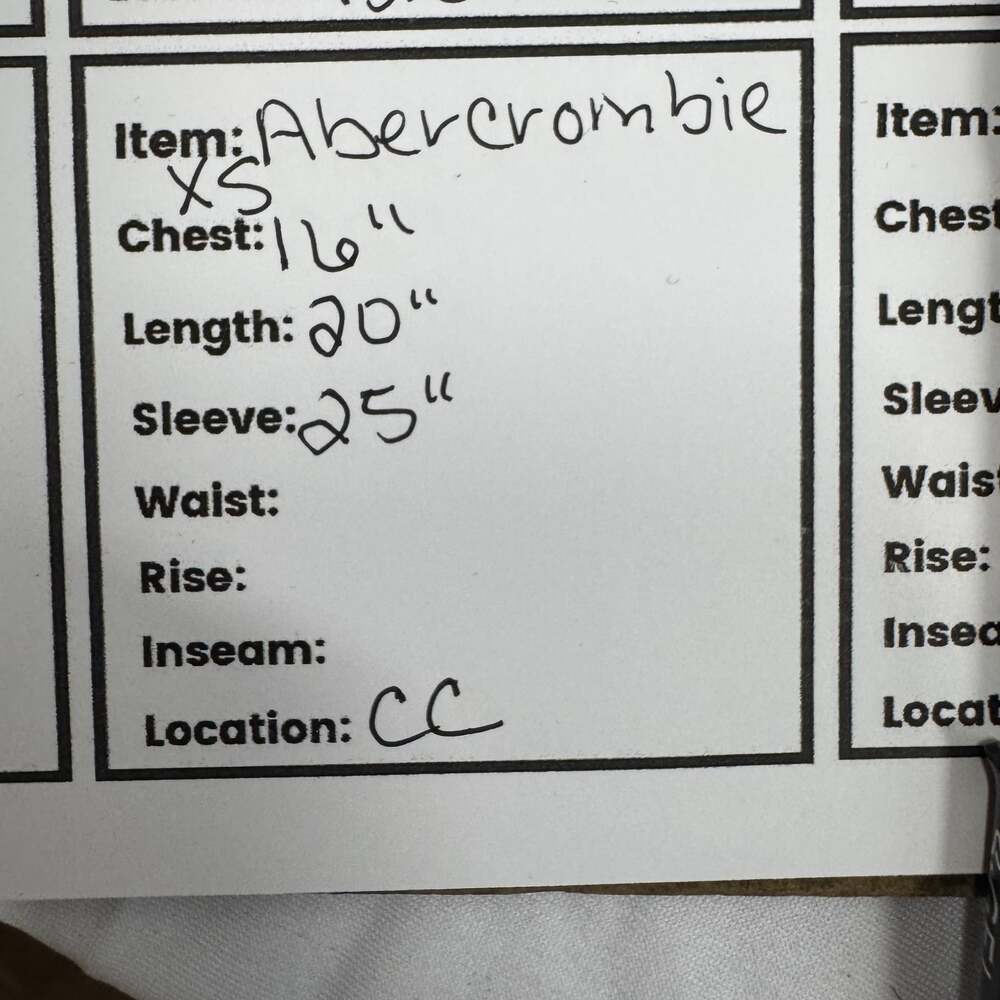 Item: Abercrombie
XS
Chest: 16"
Length: 20"
Sleeve: 25"
Waist:
Rise:
Inseam:
Location: CC
Item:
Chest
Lengt
Sleev
Waist
Rise:
Insea
Locat